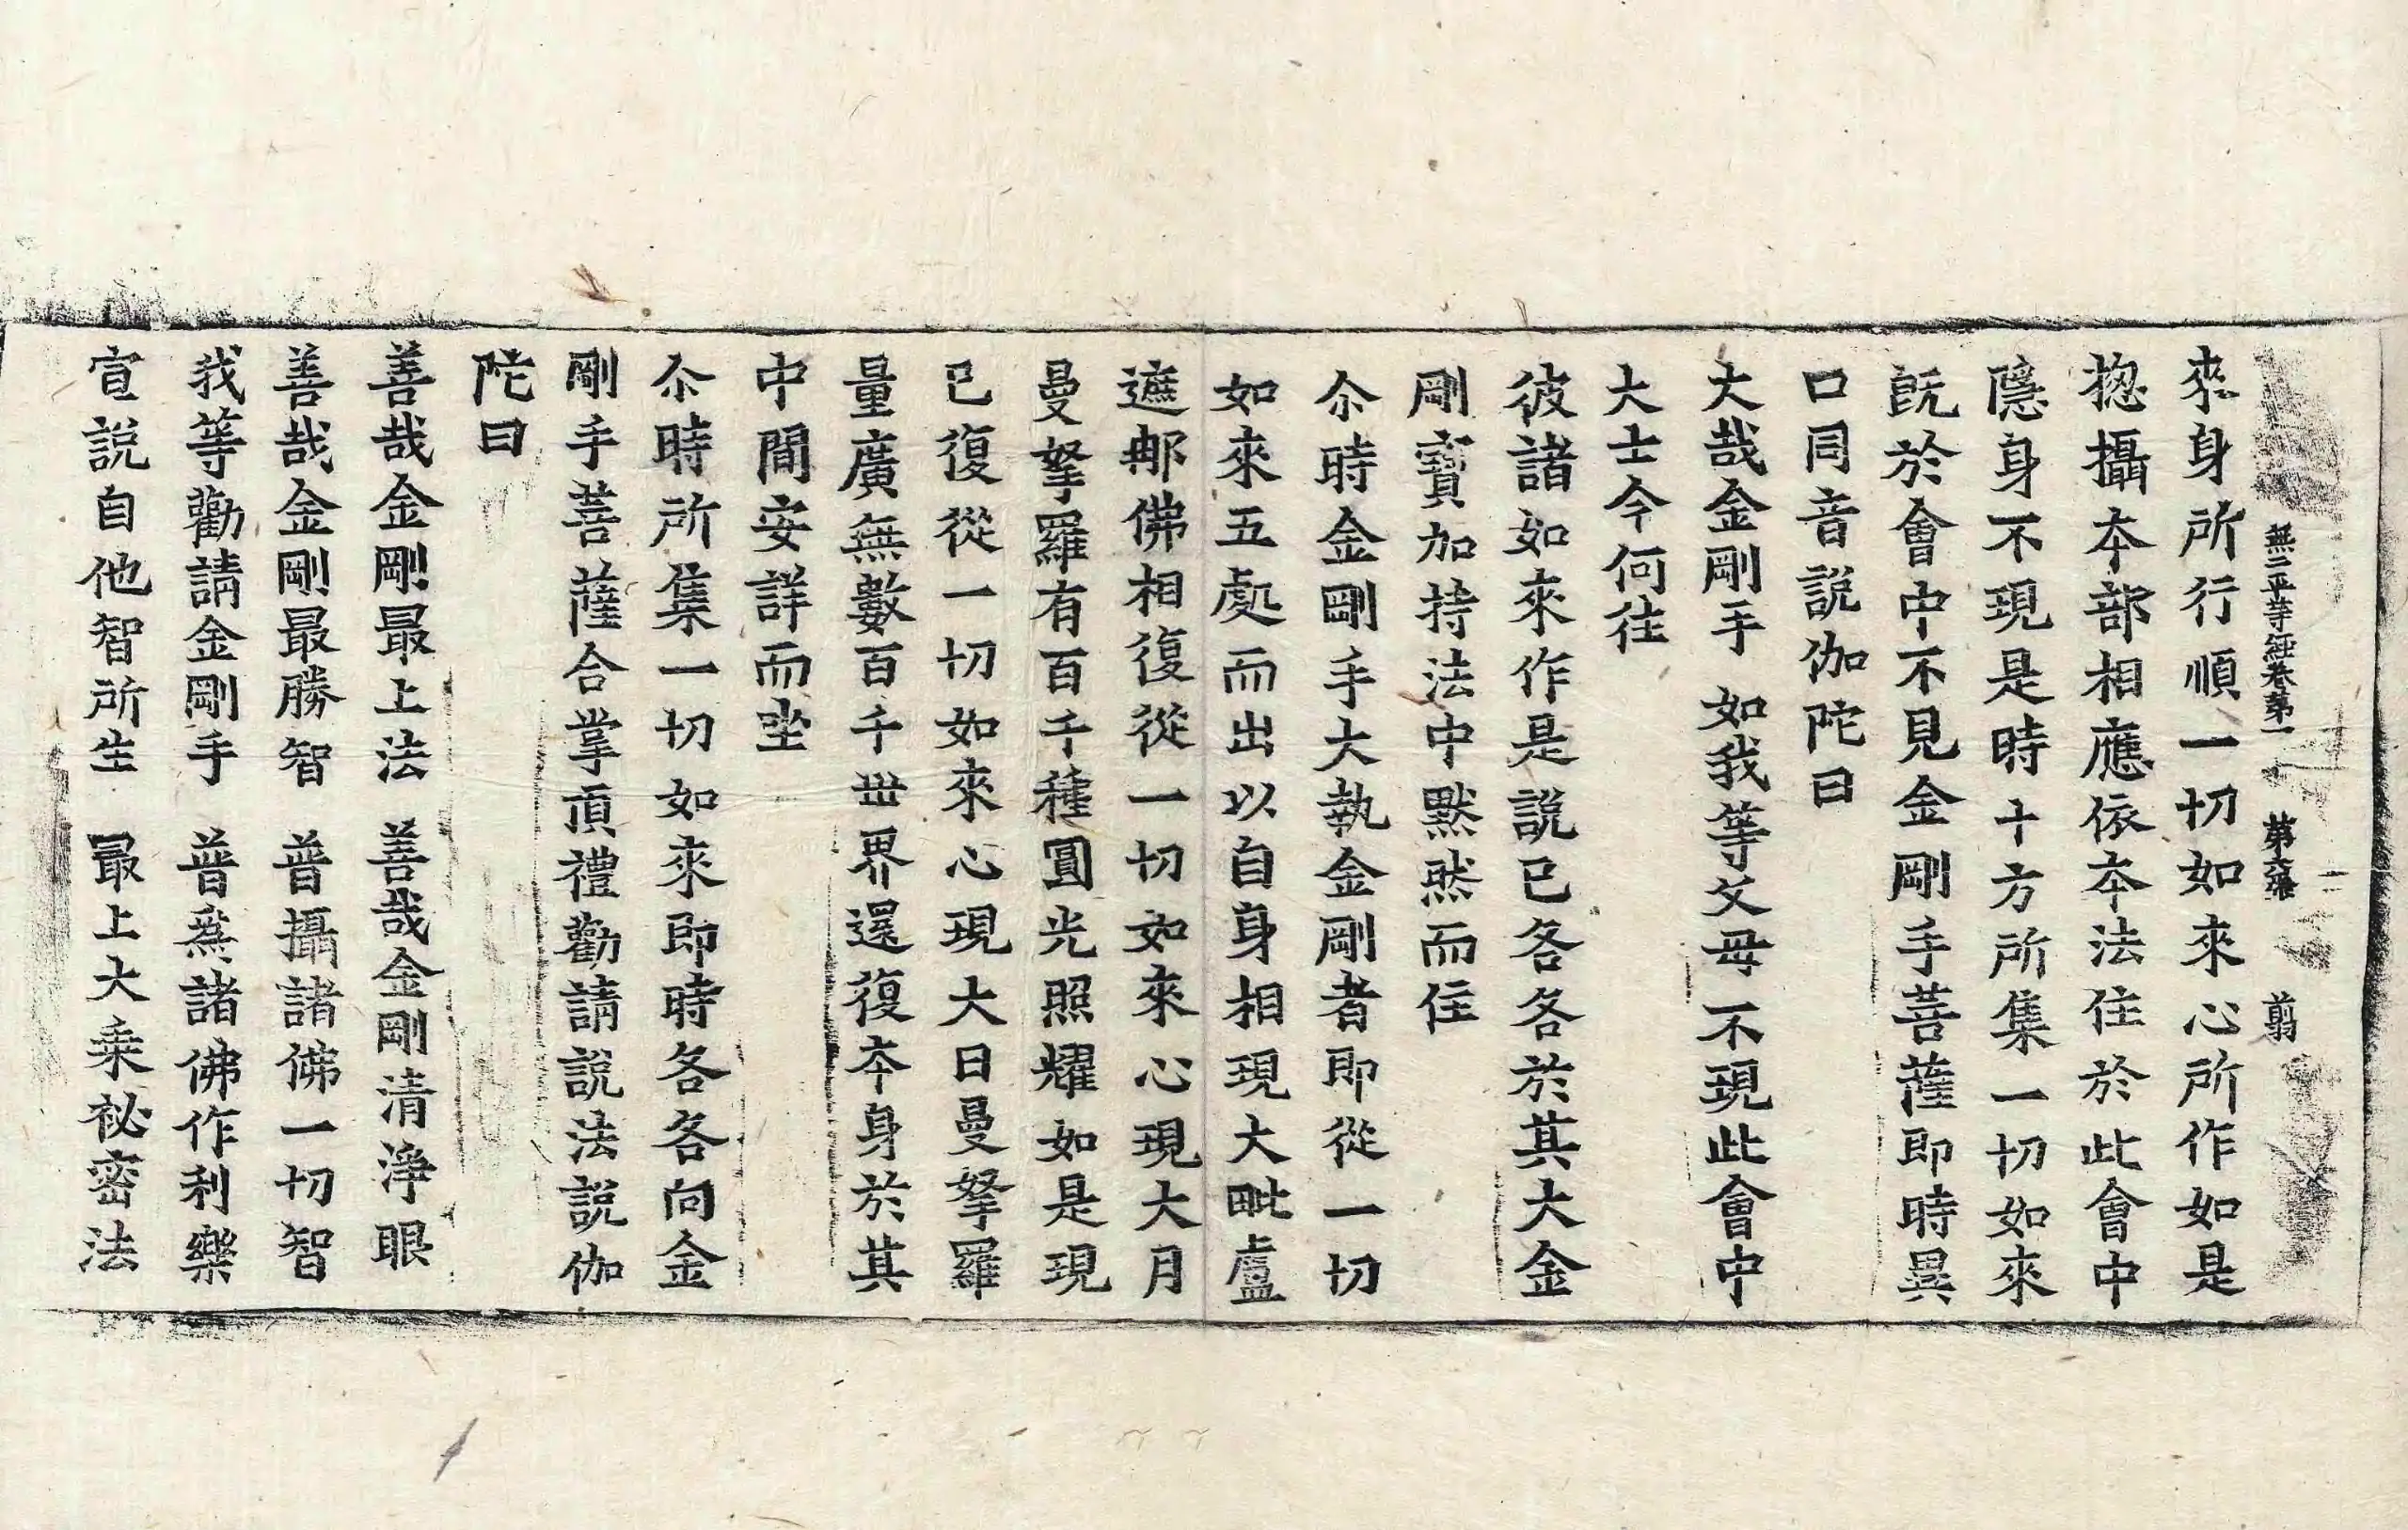 無二平等經卷第一 第六張 翦
來身所行順一切如來心所作如是
揔攝本部相應依本法住於此會中
隱身不現是時十方所集一切如來
旣於會中不見金剛手菩薩即時異
口同音說伽陀曰
大哉金剛手 如我等父母不現此會中
大士今何往
彼諸如來作是說已各各於其大金
剛寶加持法中默然而住
尒時金剛手大執金剛者即從一切
如來五處而出以自身相現大毗盧
遮那佛相復從一切如來心現大月
曼拏羅有百千種圓光照耀如是現
已復從一切如來心現大日曼拏羅
量廣無數百千世界還復本身於其
中間安詳而坐
尒時所集一切如來即時各各向金
剛手菩薩合掌頂禮勸請說法說伽
陀曰
善哉金剛最上法 善哉金剛清淨眼
善哉金剛最勝智 普攝諸佛一切智
我等勸請金剛手 普爲諸佛作利樂
宣說自他智所生 最上大乘祕密法